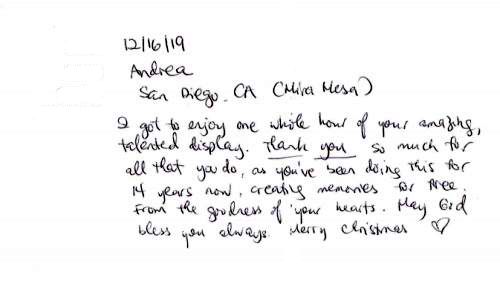 12/16/19
Andrea
San Diego, CA (Mira Mesa)
I got to enjoy one whole hour of your amazing,
talented display. Thank you so much for
all that you do, as you've been doing this for
14 years now, creating memories for free.
From the goodness of your hearts. May God
bless you always. Merry Christmas ♡